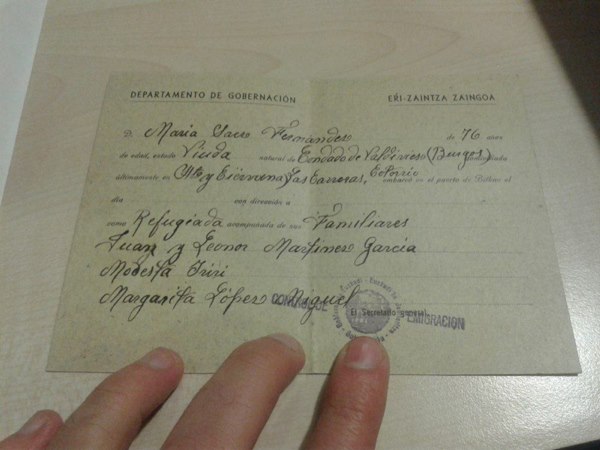 DEPARTAMENTO DE GOBERNACIÓN
EŔI-ZAINTZA ZAINGOA
D. Maria Saez Fernandez de 76 años
de edad, estado Viuda natural de Condado de Valdivieso (Burgos)
últimamente en Las Carreras, embarcó en el puerto de Bilbao el
día con dirección a
como Refugiada acompañada de sus Familiares
Juan y Leonor Martinez Garcia
Modesta
Margarita López Miguel
El Secretario general,
EMIGRACION